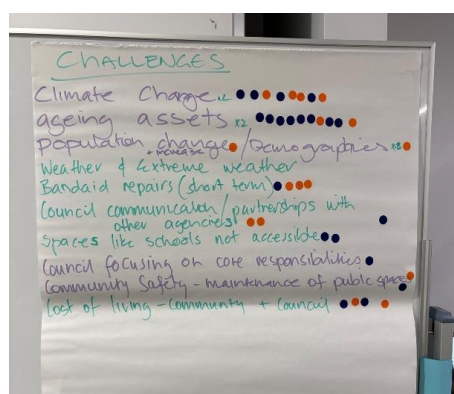 CHALLENGES
Climate Change x2
ageing assets x2
Population change / Demographics x3
• increase
Weather & Extreme weather
Bandaid repairs (short term)
Council communication/partnerships with
other agencies
Spaces like schools not accessible
Council focusing on core responsibilities
Community Safety - maintenance of public spaces
Cost of living - Community + Council